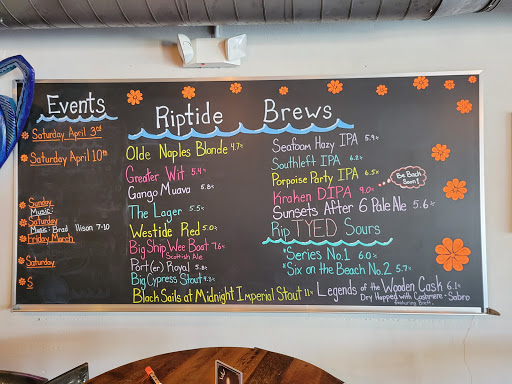 Events
Saturday April 3rd
Saturday April 10th
Sunday
Music:
Saturday
Music: Brad 7-10
Friday March
Saturday
S
Riptide Brews
Olde Naples Blonde 4.7%
Greater Wit 5.4%
Gango Muava 5.8%
The Lager 5.5%
Westide Red 5.0%
Big Ship Wee Boat 7.6%
Scottish Ale
Port(er) Royal 5.8%
Big Cypress Stout 9.3%
Black Sails at Midnight Imperial Stout 11%
Seafoam Hazy IPA 5.9%
Southleft IPA 6.2%
Porpoise Party IPA 6.5%
Be Back Soon!
Kraken DIPA 9.0%
Sunsets After 6 Pale Ale 5.6%
RipTYED Sours
*Series No.1 6.0%
*Six on the Beach No.2 5.7%
Legends of the Wooden Cask 6.1%
Dry Hopped with Cashmere - Sabro
featuring Brett.